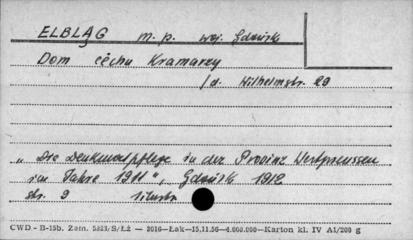 ELBLĄG m. p. woj. Gdańsk
Dom cechu Kramarzy
/d. Wilhelmstr. 29
„Die Denkmalpflege in der Provinz Westpreussen
im Jahre 1911", Gdańsk 1912
str. 9 ilustr.
CWD.- B-15b. Zam. 5821/S/Łż — 3016—Łak—15.11.56—4.000.000—Karton kl. IV A1/200 g